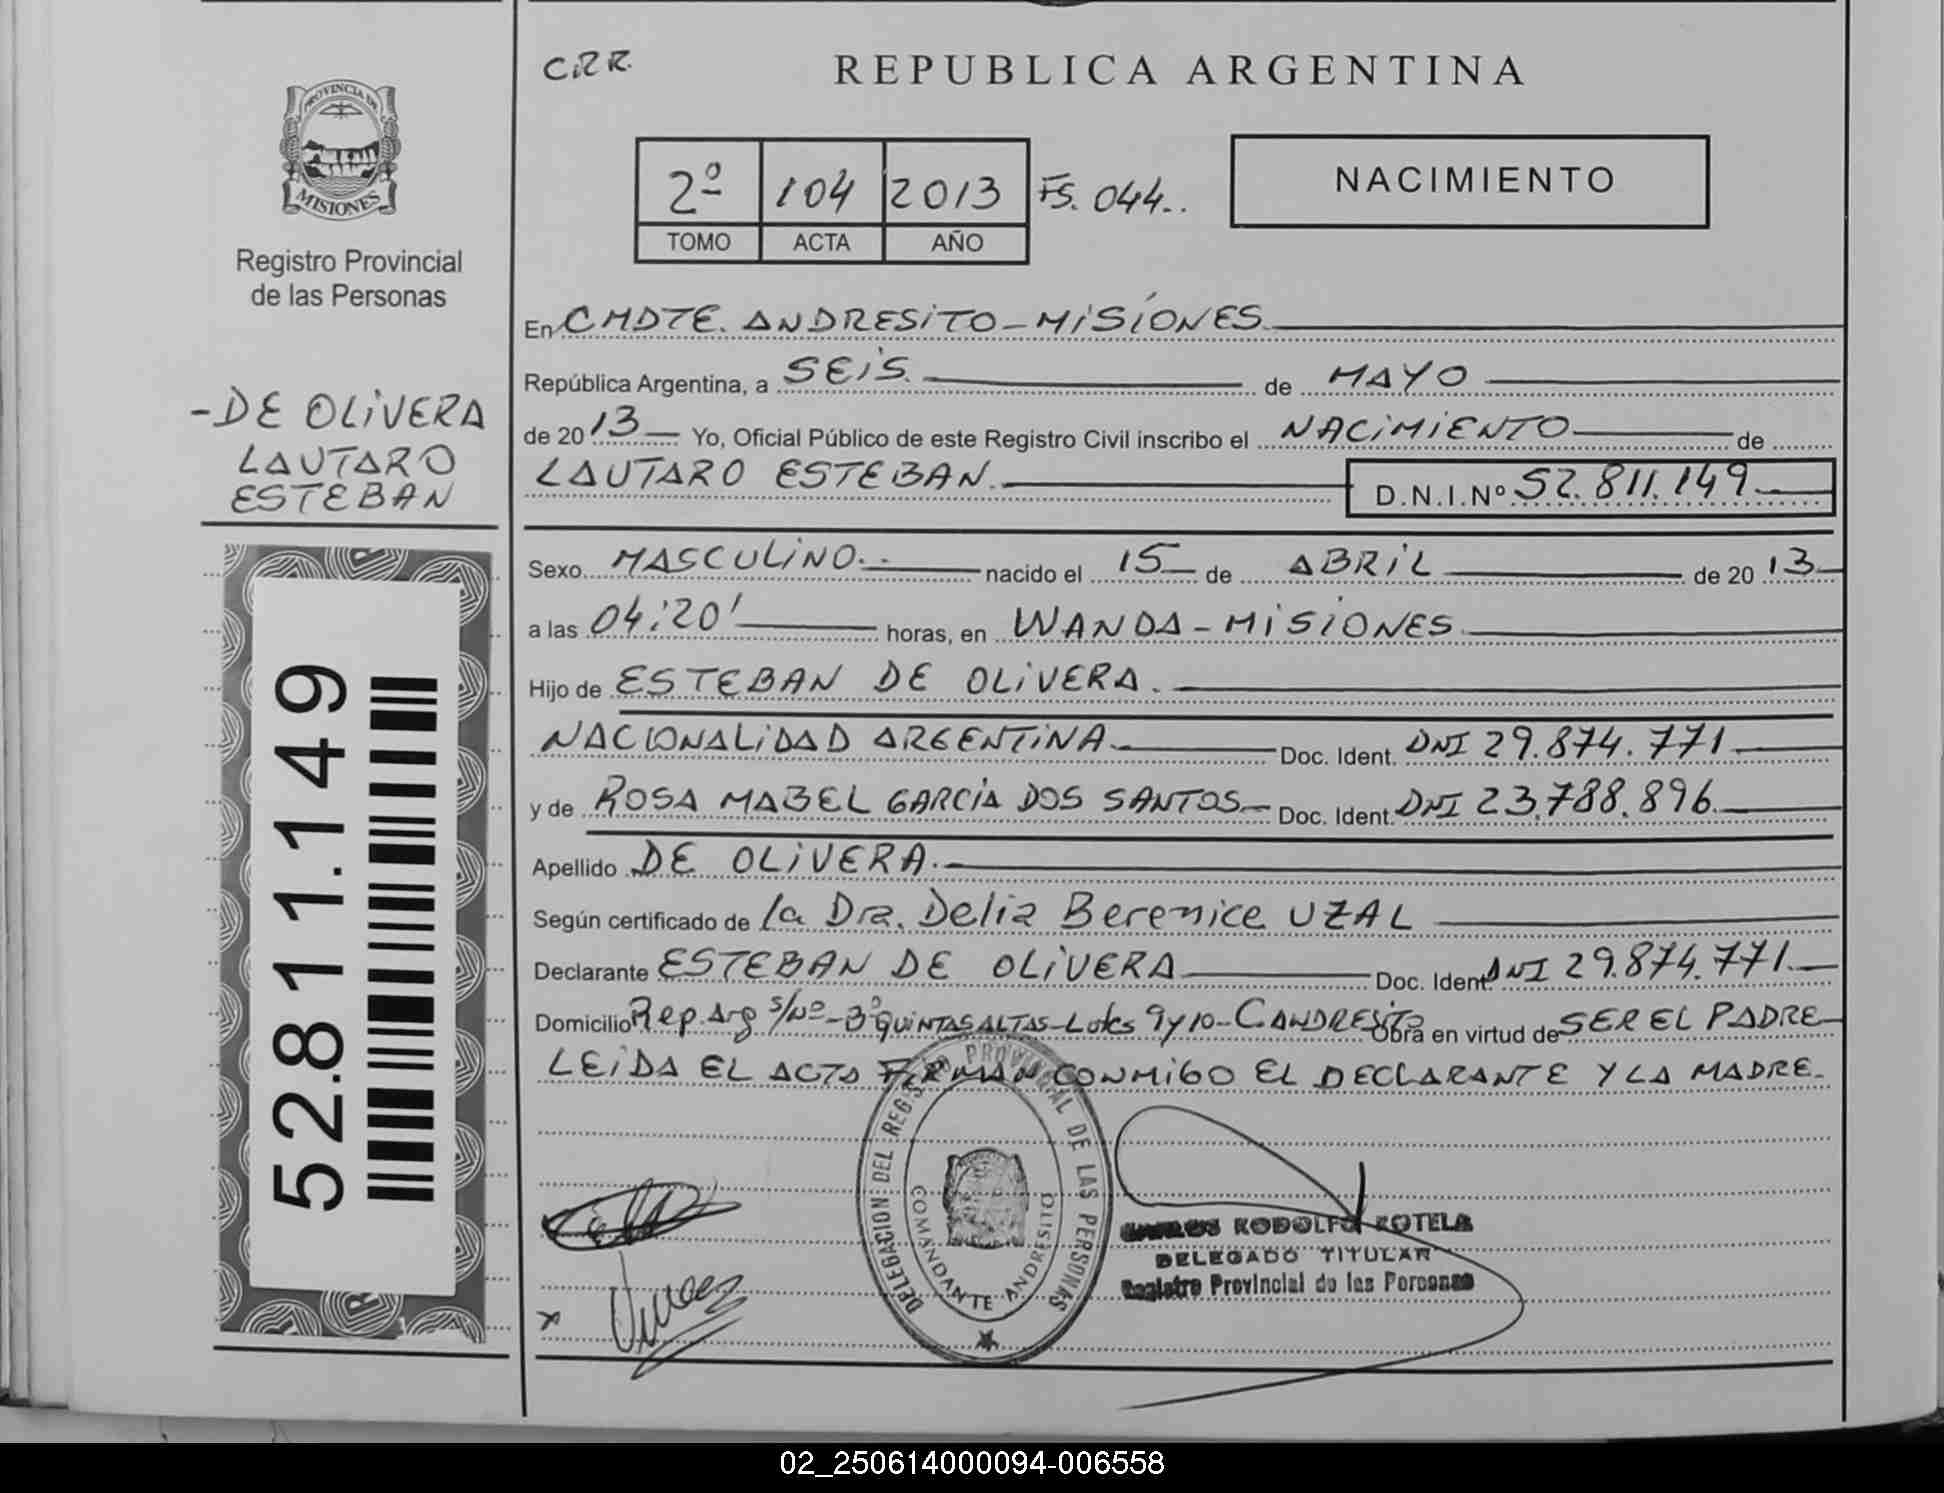 CRR.
REPUBLICA ARGENTINA
PROVINCIA DE
MISIONES
Registro Provincial
de las Personas
2º 104 2013 FS. 044..
TOMO ACTA AÑO
NACIMIENTO
-DE OLIVERA
LAUTARO
ESTEBAN
52.811.149
En CMDTE. ANDRESITO - MISIONES
República Argentina, a SEIS. de MAYO
de 2013 Yo, Oficial Público de este Registro Civil inscribo el NACIMIENTO de
LAUTARO ESTEBAN. D.N.I.Nº 52.811.149
Sexo MASCULINO.. nacido el 15 de ABRIL de 2013
a las 04:20' horas, en WANDA - MISIONES
Hijo de ESTEBAN DE OLIVERA.
NACIONALIDAD ARGENTINA. Doc. Ident. DNI 29.874.771
y de ROSA MABEL GARCÍA DOS SANTOS Doc. Ident. DNI 23.788.896.
Apellido DE OLIVERA.
Según certificado de la Dra. Delia Berenice UZAL
Declarante ESTEBAN DE OLIVERA Doc. Ident. DNI 29.874.771.
Domicilio Rep. Arg S/Nº - Bº QUINTAS ALTAS - Lotes 9 y 10 - C. ANDRESITO Obra en virtud de SER EL PADRE
LEIDA EL ACTA FIRMAN CONMIGO EL DECLARANTE Y LA MADRE.
DELEGACION DEL REGISTRO PROVINCIAL DE LAS PERSONAS
COMANDANTE ANDRESITO
CARLOS RODOLFO ROTELA
DELEGADO TITULAR
Registro Provincial de las Personas
02_250614000094-006558